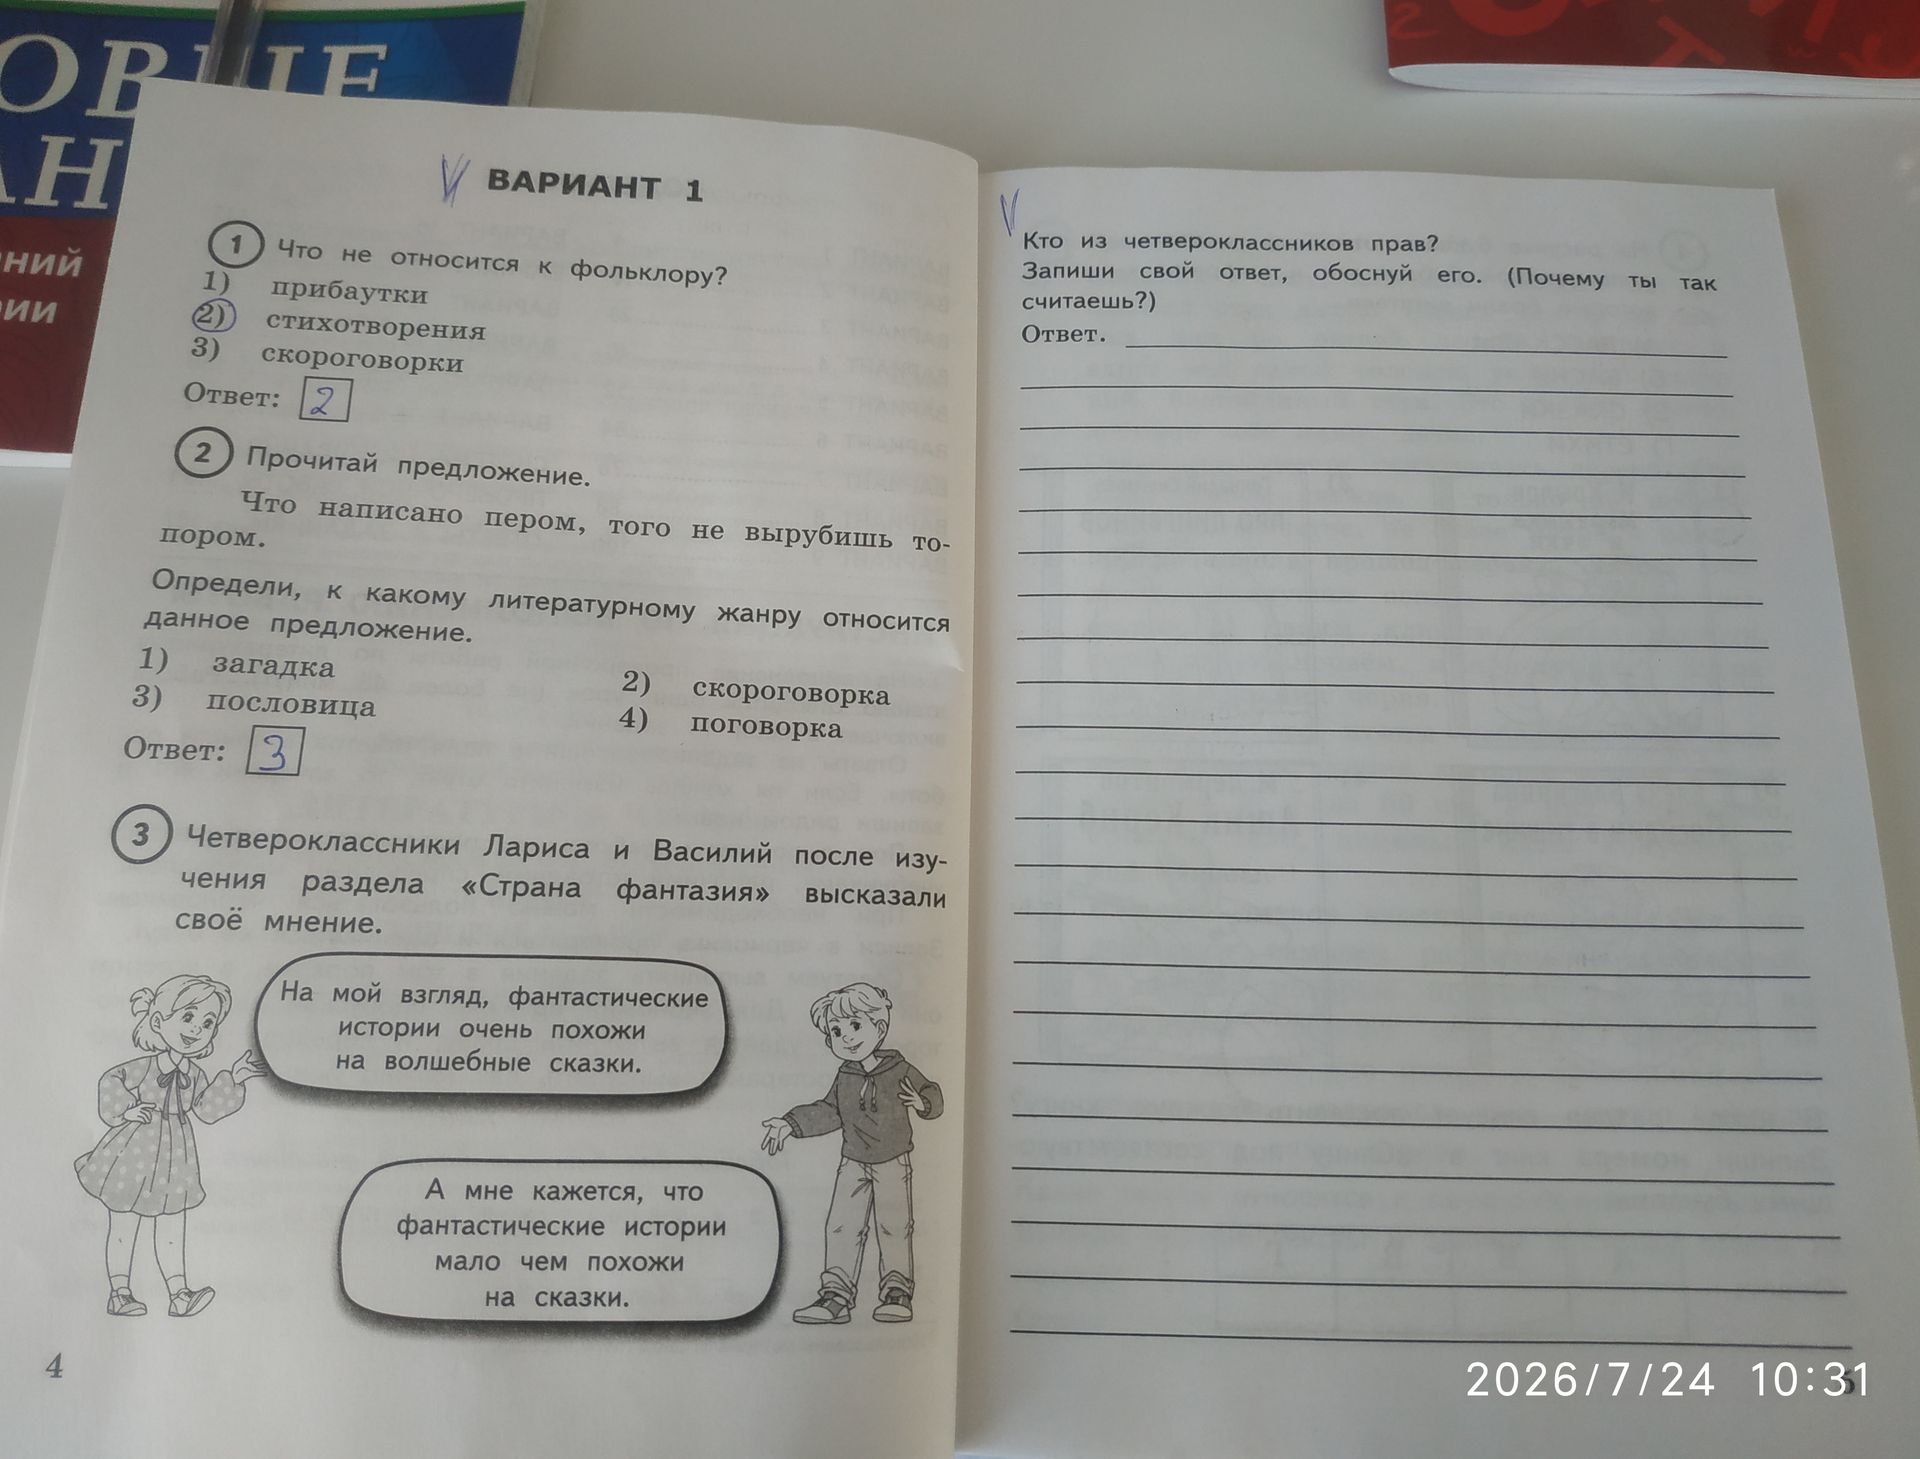 ОВЫЕ
АН
ний
ии
ВАРИАНТ 1
1 Что не относится к фольклору?
1) прибаутки
2) стихотворения
3) скороговорки
Ответ: 2
2 Прочитай предложение.
Что написано пером, того не вырубишь то-
пором.
Определи, к какому литературному жанру относится
данное предложение.
1) загадка
2) скороговорка
3) пословица
4) поговорка
Ответ: 3
3 Четвероклассники Лариса и Василий после изу-
чения раздела «Страна фантазия» высказали
своё мнение.
На мой взгляд, фантастические
истории очень похожи
на волшебные сказки.
А мне кажется, что
фантастические истории
мало чем похожи
на сказки.
4
Кто из четвероклассников прав?
Запиши свой ответ, обоснуй его. (Почему ты так
считаешь?)
Ответ.
5
2026/7/24 10:31